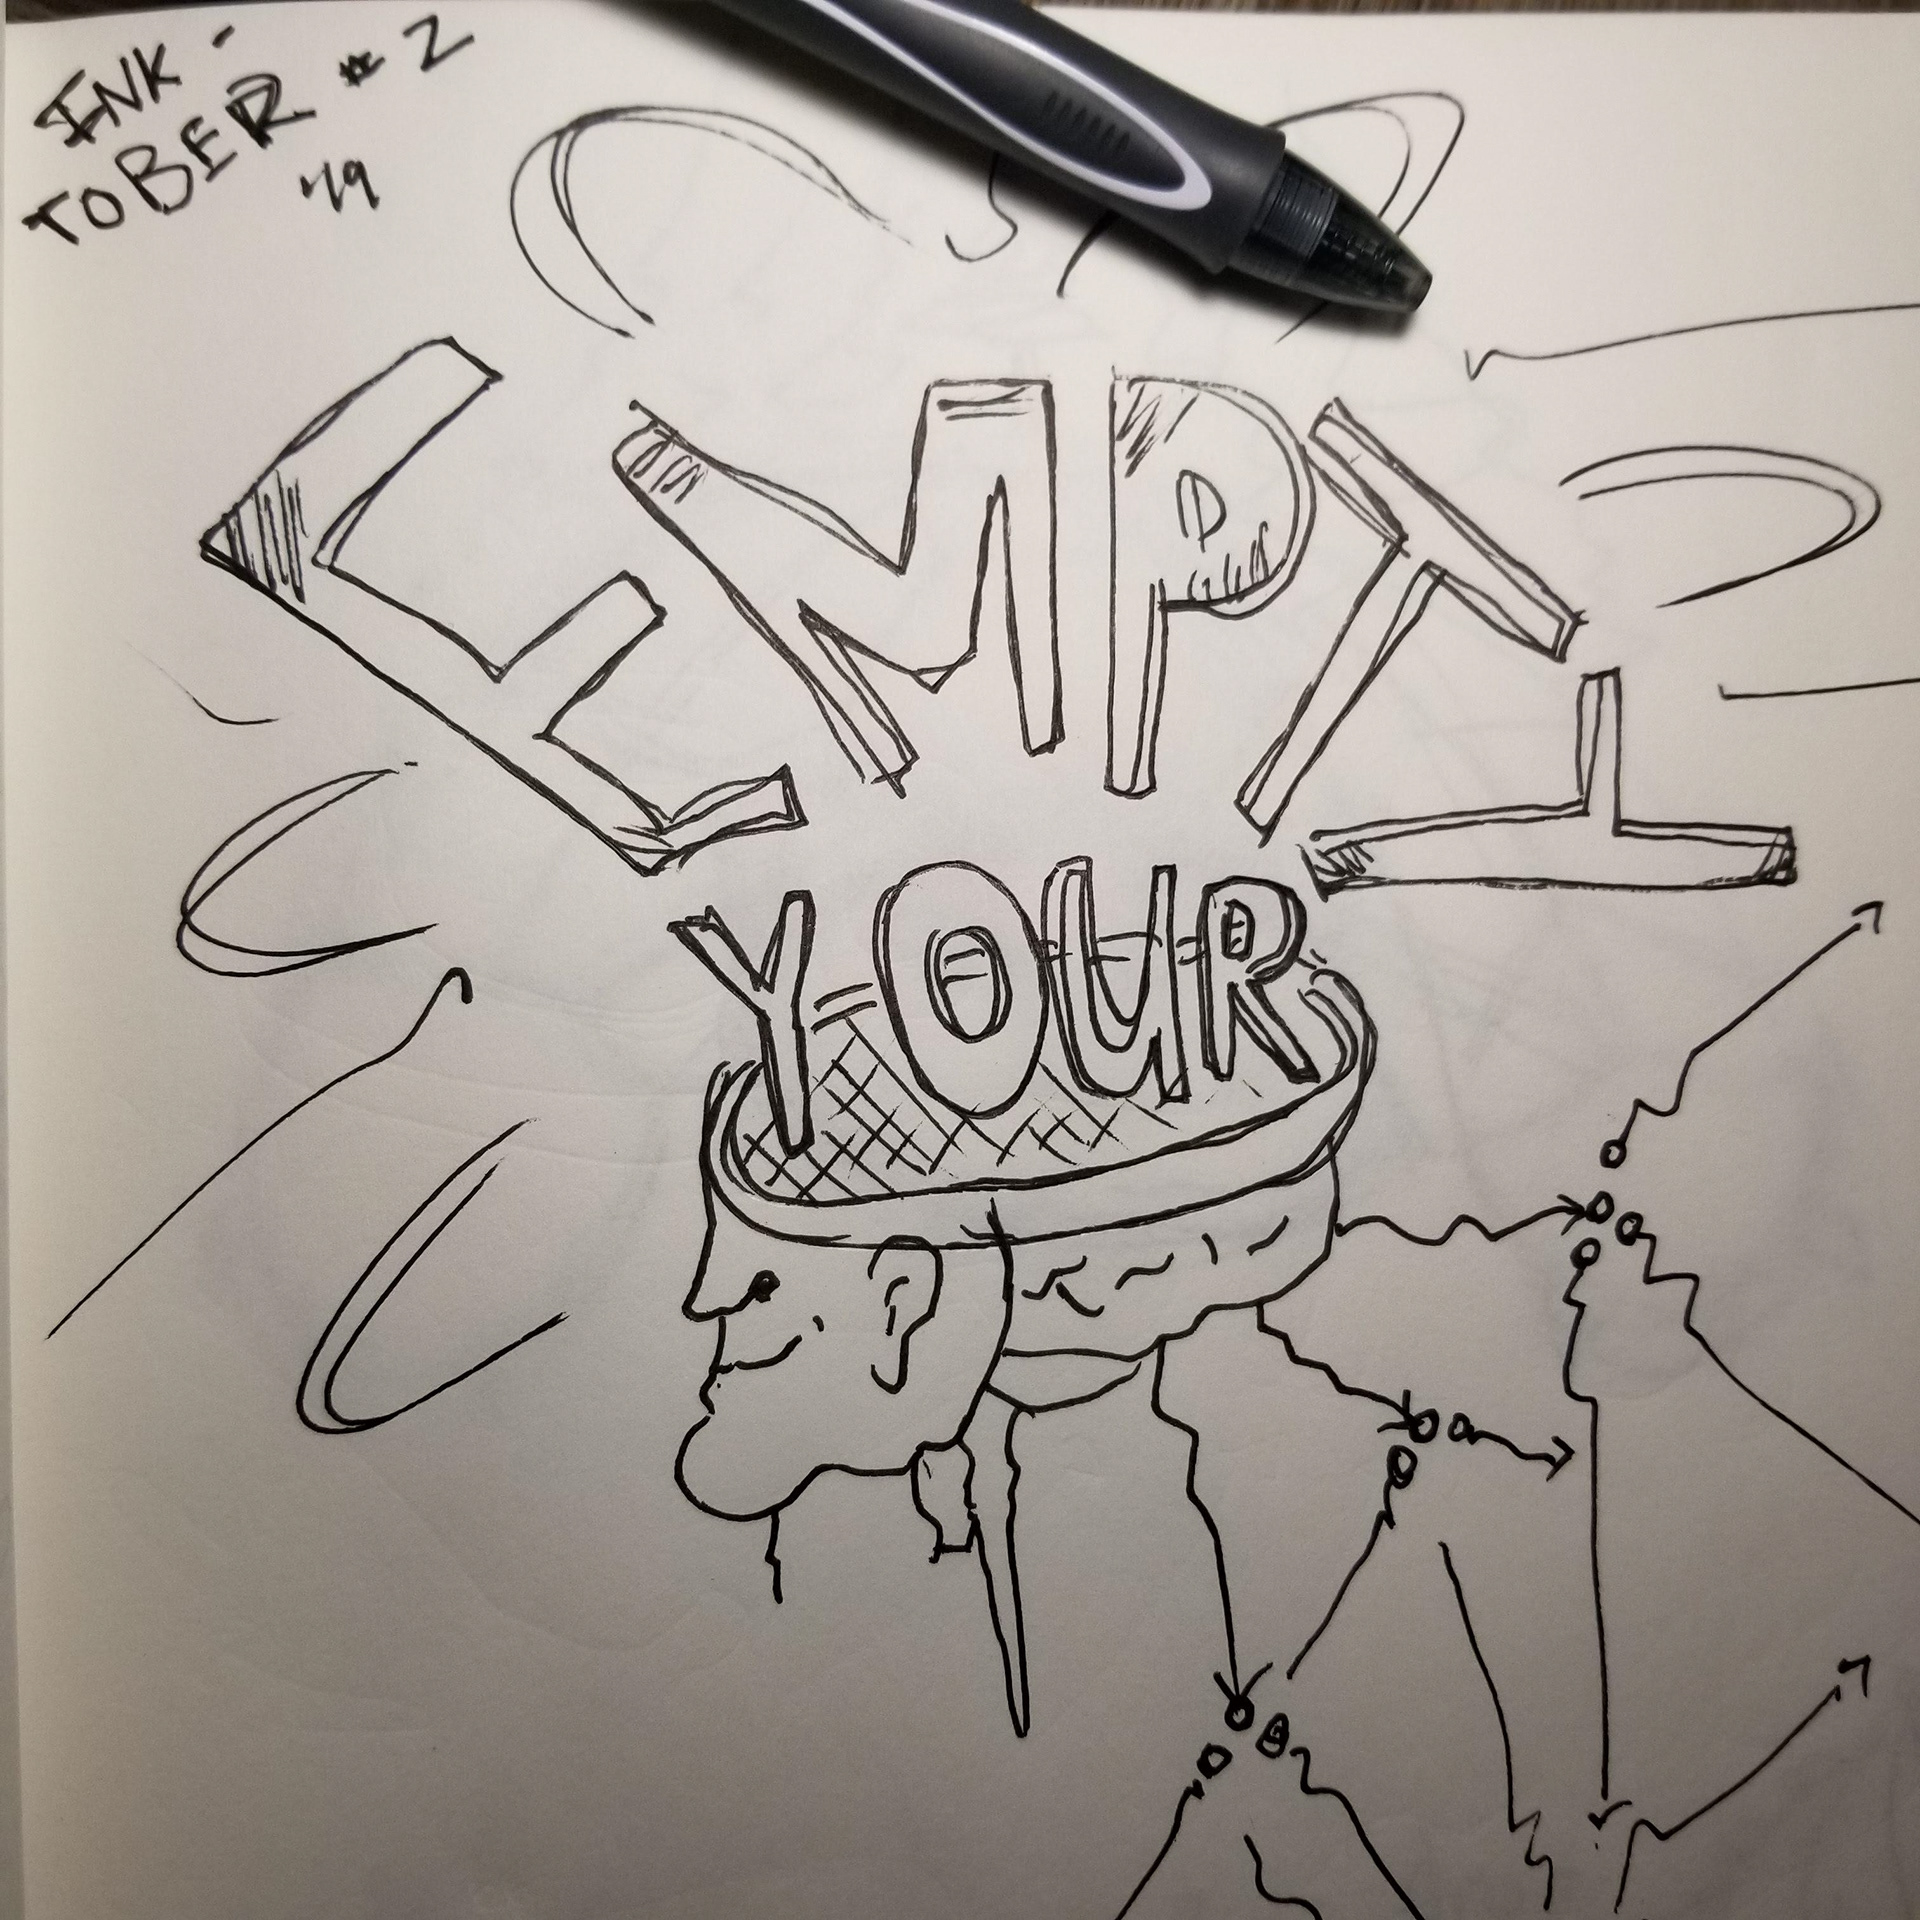 INK-
TOBER #2
'19
EMPTY
YOUR